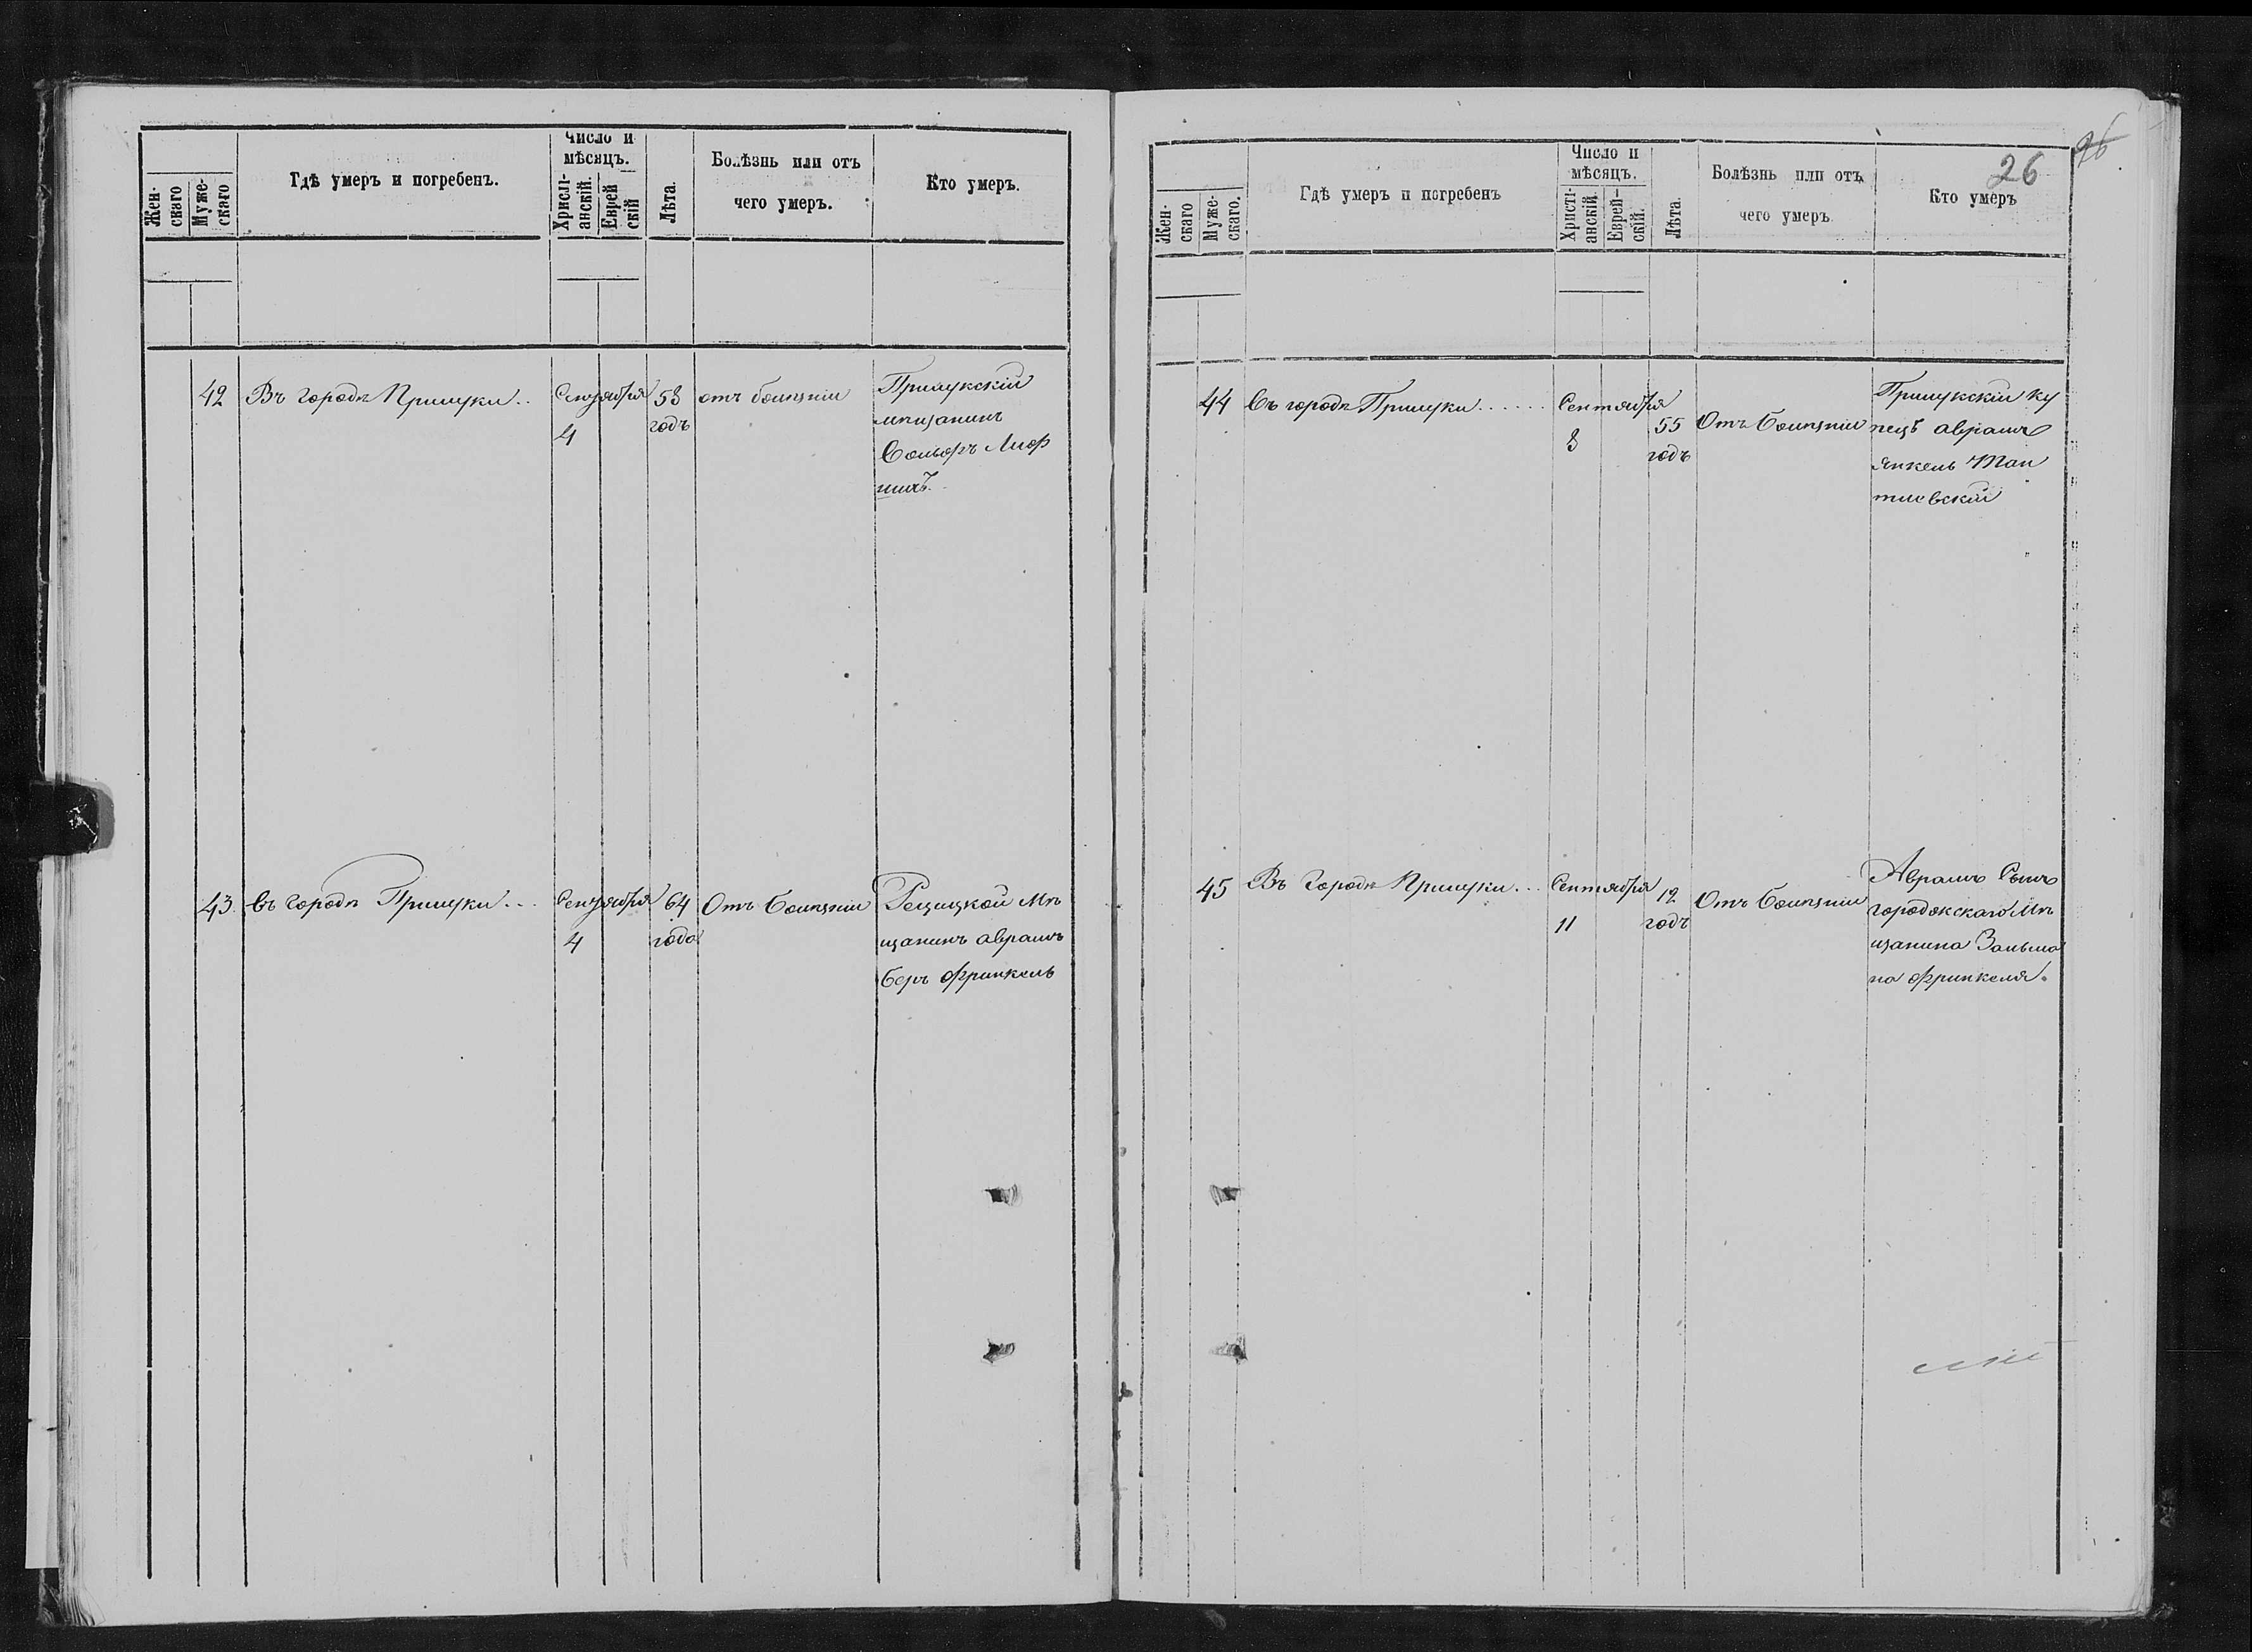 Жен-
скаго
Муже-
скаго
Гдѣ умеръ и погребенъ.
Число и
мѣсяцъ.
Христі-
анскій.
Еврей
скій
Лѣта.
Болѣзнь или отъ
чего умеръ.
Кто умеръ.
42
Въ городѣ Прилуки..
Сентября
4
58
годъ
отъ болѣзни
Прилукскій
мѣщанинъ
43
въ городѣ Прилуки...
Сентября
4
64
года
Отъ болѣзни
Речицкой мѣ
щанинъ аврамъ
беръ Фринкель
26
Жен-
скаго
Муже-
скаго.
Гдѣ умеръ и погребенъ
Число и
мѣсяцъ.
Христі-
анскій.
Еврей-
скій.
Лѣта.
Болѣзнь или отъ
чего умеръ
Кто умеръ
44
въ городѣ Прилуки......
Сентября
8
55
годъ
Отъ болѣзни
Прилукскій ку
пецъ аврамъ
янкель
45
Въ городѣ Прилуки...
Сентября
11
12
годъ
Отъ болѣзни
Аврамъ сынъ
городокскаго мѣ
щанина Зальма
на Фринкеля.